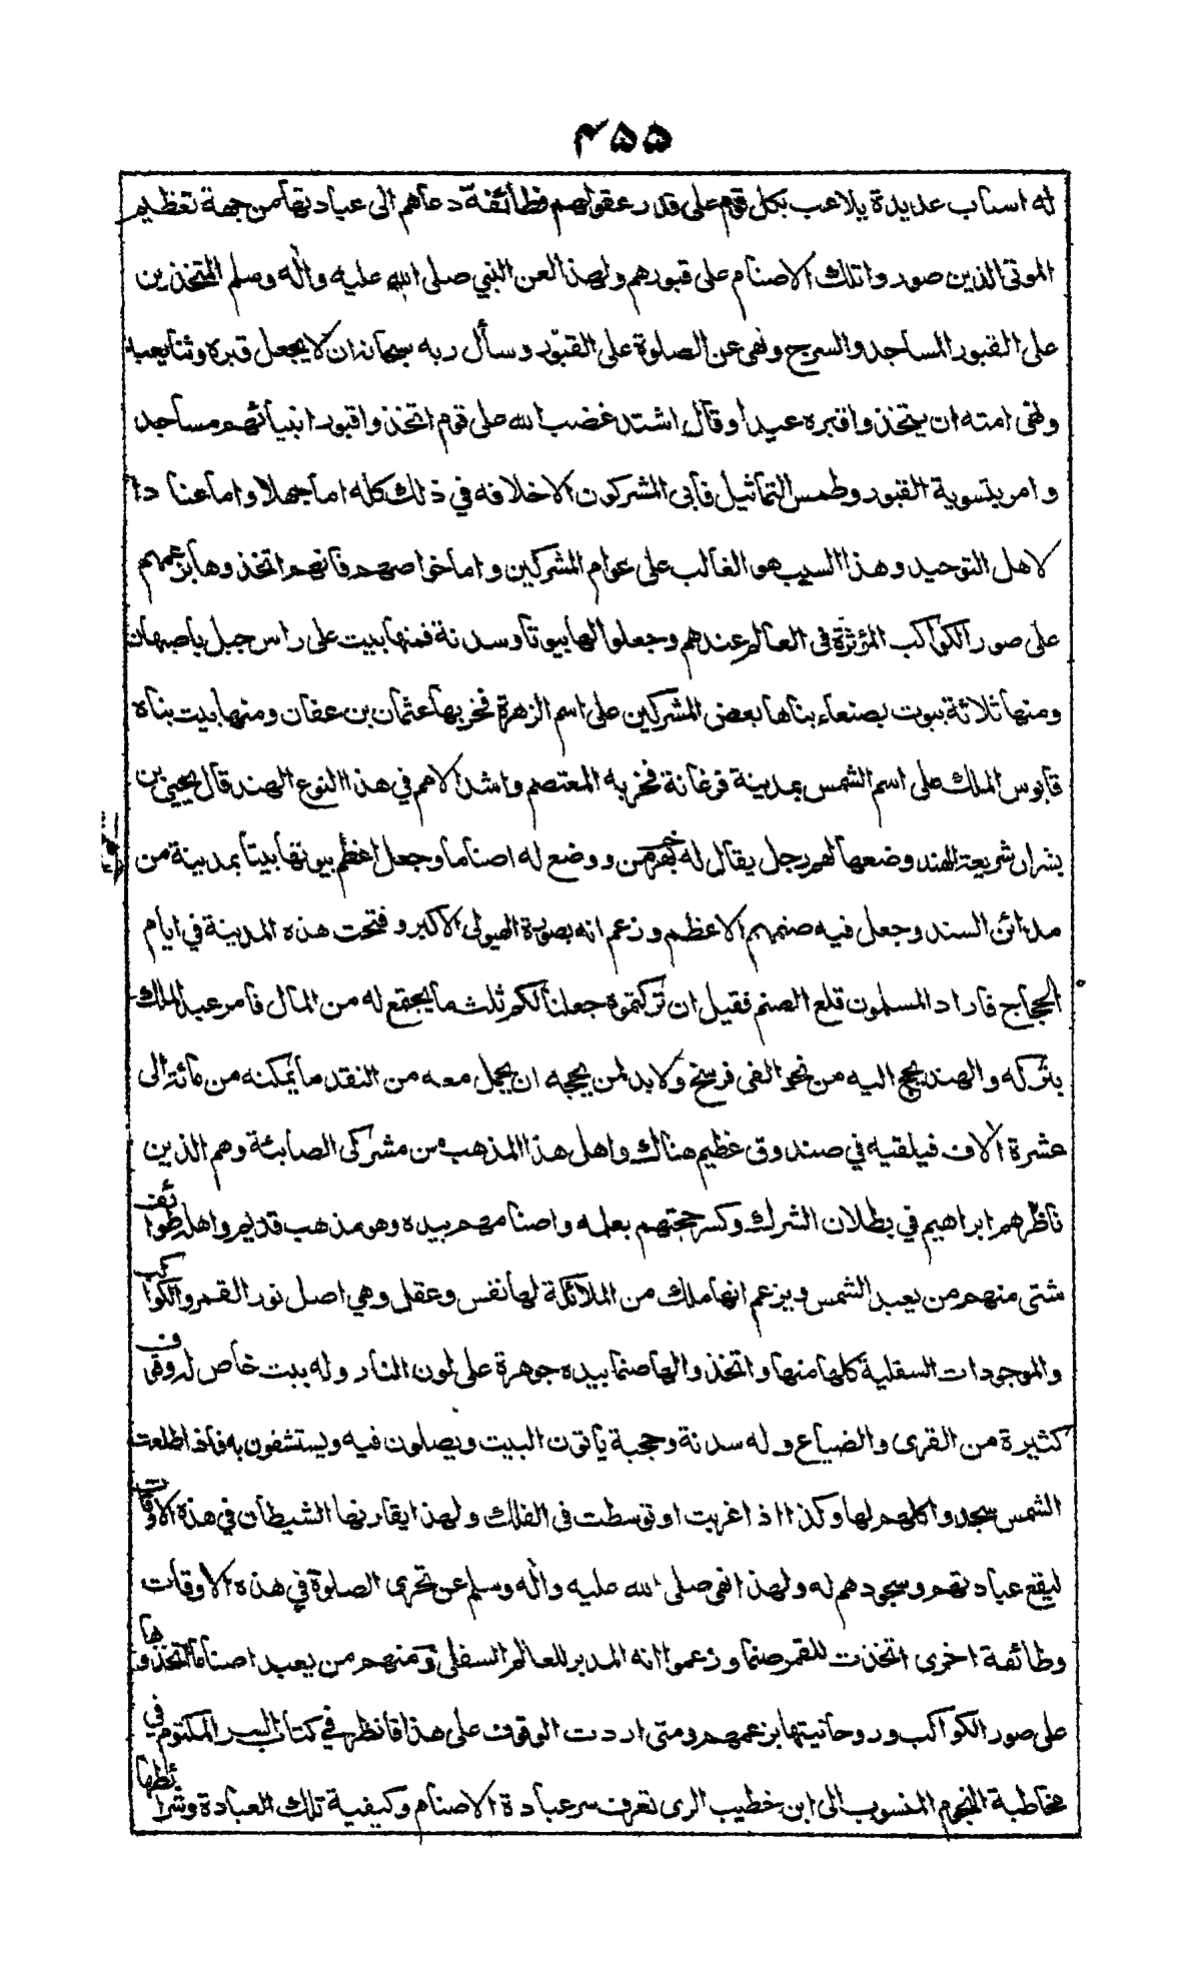 ۴۵۵
له اسباب عديدة يلاعب بكل قوم على قدر عقولهم فطائفة دعاهم الى عبادتها من جهة تعظيم
الموتى الذين صوروا تلك الاصنام على قبورهم ولهذا لعن النبي صلى الله عليه وآله وسلم المتخذين
على القبور المساجد والسرج ونهى عن الصلوة على القبور وسأل ربه سبحانه ان لا يجعل قبره وثنا يعبد
ونهى امته ان يتخذوا قبره عيدا وقال اشتد غضب الله على قوم اتخذوا قبور انبيائهم مساجد
وامر بتسوية القبور وطمس التماثيل فأبى المشركون الا خلافه في ذلك كله اما جهلا واما عنادا
لاهل التوحيد وهذا السبب هو الغالب على عوام المشركين واما خواصهم فانهم اتخذوها بزعمهم
على صور الكواكب المؤثرة فى العالم عندهم وجعلوا لها بيوتا وسدنة فمنها بيت على راس جبل باصبهان
ومنها ثلاثة بيوت بصنعاء بناها بعض المشركين على اسم الزهرة فخربها عثمان بن عفان ومنها بيت بناه
قابوس الملك على اسم الشمس بمدينة فرغانة فخربه المعتصم واشد الامم في هذا النوع الهند قال يحيى بن
بشران شريعة الهند وضعها لهم رجل يقال له برهمن ووضع له اصناما وجعل اعظم بيوتها بيتا بمدينة من
مدائن السند وجعل فيه صنمهم الاعظم وزعم انه بصورة الهيولى الاكبر وفتحت هذه المدينة في ايام
الحجاج فاراد المسلمون قلع الصنم فقيل ان تركتموه جعلنا لكم ثلث ما يجتمع له من المال فامر عبد الملك
بتركه والهند يحج اليه من نحو الفى فرسخ ولا بد لمن يحجه ان يحمل معه من النقد ما يمكنه من مائة الى
عشرة آلاف فيلقيه في صندوق عظيم هناك واهل هذا المذهب من مشركى الصابئة وهم الذين
ناظرهم ابراهيم في بطلان الشرك وكسر حجتهم بعلمه واصنامهم بيده وهو مذهب قديم واهله طوائف
شتى منهم من يعبد الشمس ويزعم انها ملك من الملائكة لها نفس وعقل وهي اصل نور القمر والكواكب
والموجودات السفلية كلها منها واتخذوا لها صنما بيده جوهرة على لون النار وله بيت خاص له وقوف
كثيرة من القرى والضياع وله سدنة وحجبة يأتون البيت ويصلون فيه ويستشفون به فاذا طلعت
الشمس سجدوا كلهم لها وكذا اذا غربت او توسطت فى الفلك ولهذا يقارنها الشيطان في هذه الاوقات
ليقع عبادتهم وسجودهم له ولهذا نهى صلى الله عليه وآله وسلم عن تحرى الصلوة في هذه الاوقات
وطائفة اخرى اتخذت للقمر صنما وزعموا انه المدبر للعالم السفلى ومنهم من يعبد اصناما اتخذوها
على صور الكواكب وروحانيتها بزعمهم ومتى اردت الوقوف على هذا فانظر في كتاب السر المكتوم في
مخاطبة النجوم المنسوب الى ابن خطيب الرى تعرف سر عبادة الاصنام وكيفية تلك العبادة وشرائطها